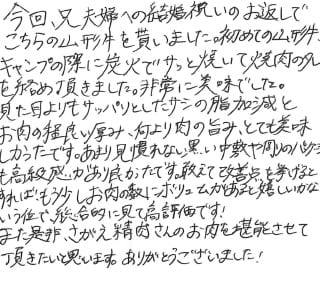 今回、兄夫婦への結婚祝いのお返しで
こちらの山形牛を貰いました。初めての山形牛、
キャンプの際に炭火でサッと焼いて焼肉のタレ
を絡め頂きました。非常に美味でした。
見た目よりもサッパリとしたサシの脂加減と
お肉の程良い厚み、何より肉の旨み、とても美味
しかったです。あまり見慣れない黒い中敷や周りのパッケージ
も高級感があり良かったです。敢えて改善点を挙げると
すれば、もう少しお肉の数にボリュームがあると嬉しいかな
いう位で、総合的に見て高評価です!
また是非、さがえ精肉さんのお肉を堪能させて
頂きたいと思います。ありがとうございました!